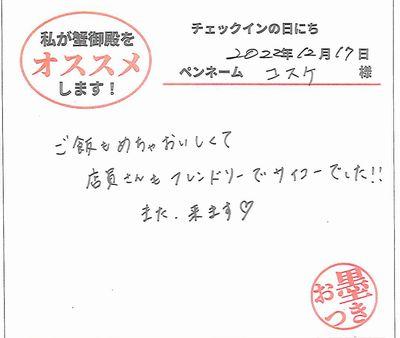 私が蟹御殿を
オススメ
します！
チェックインの日にち
2022年12月17日
ペンネーム コスケ 様
ご飯もめちゃおいしくて
店員さんもフレンドリーでサイコーでした!!
また、来ます♡
お墨
つき